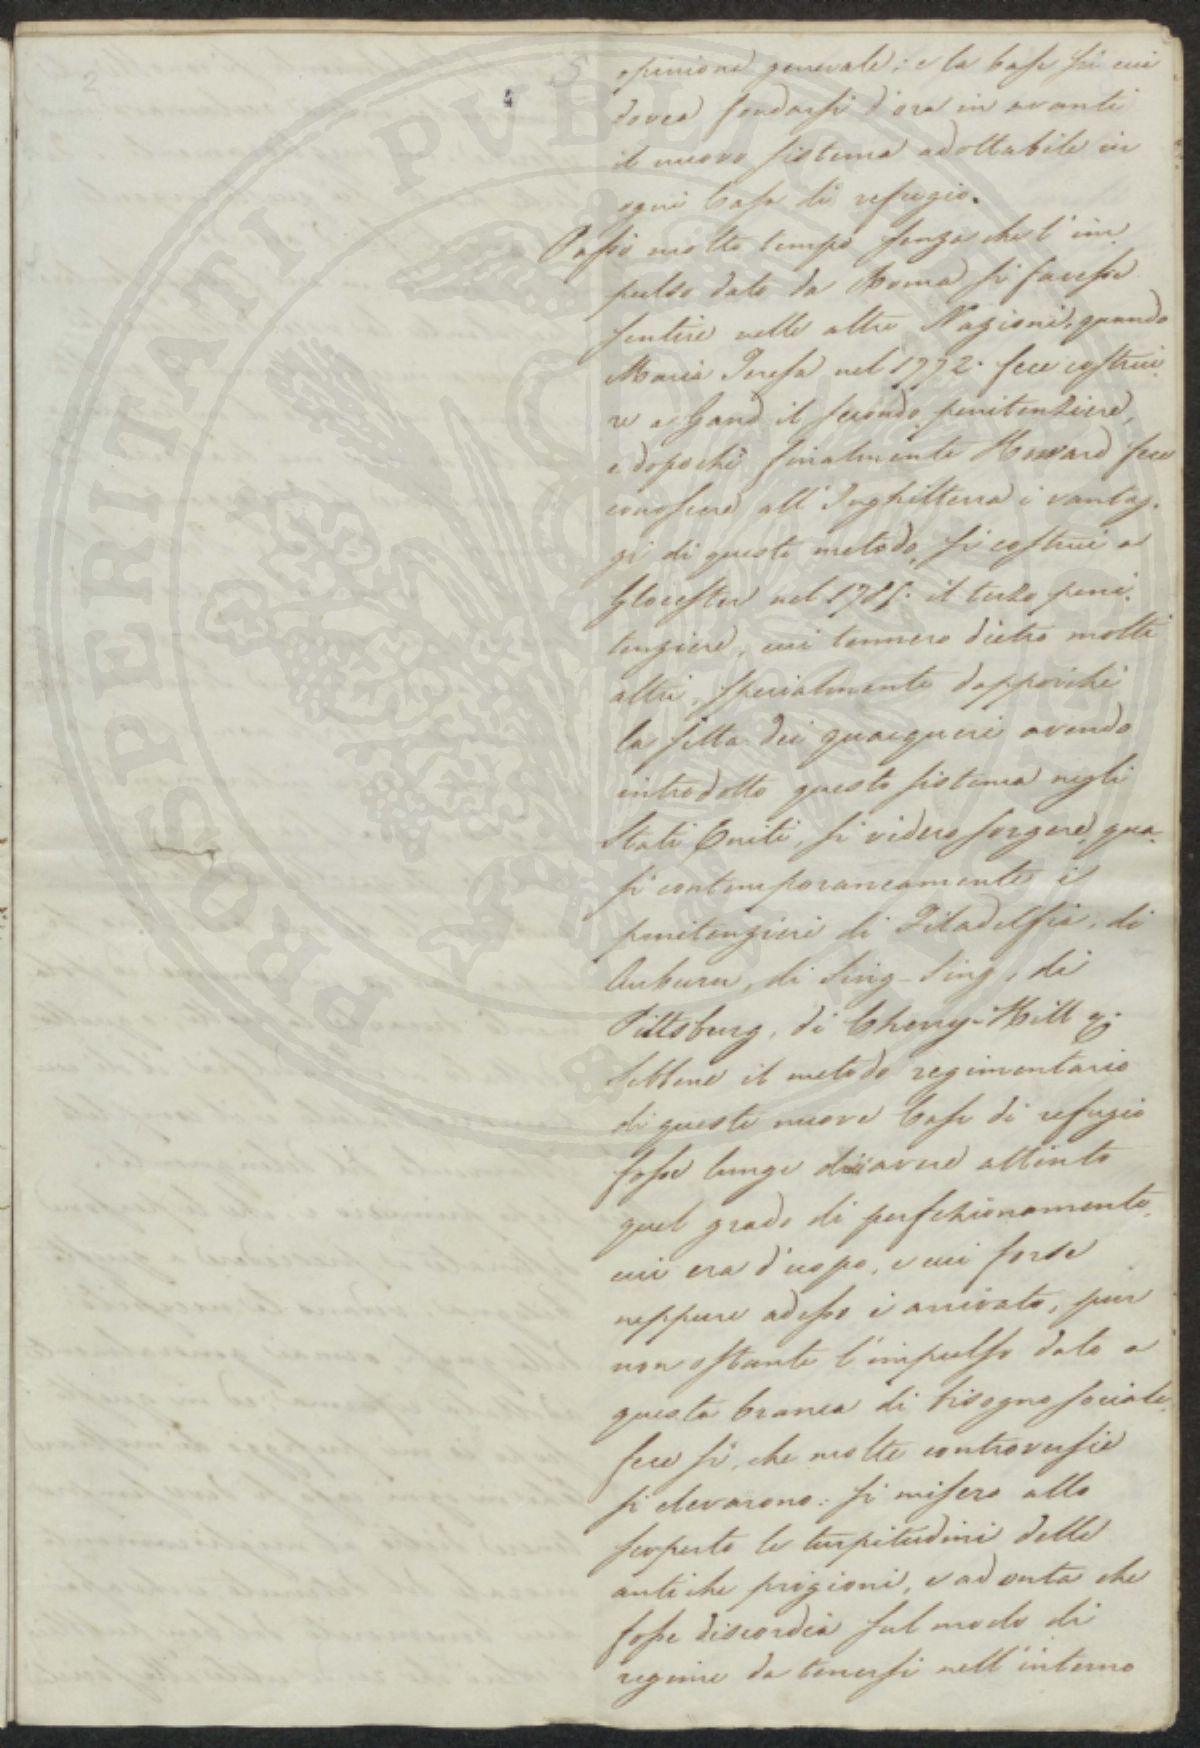 5
2
4
opinione generale; e la base su cui
dovea fondarsi d'ora in avanti
il nuovo sistema adottabile in
ogni Casa di refugio.
Passò molto tempo senza che l'im-
pulso dato da Roma si facesse
sentire nelle altre Nazioni, quando
Maria Teresa nel 1772. fece costrui-
re a Gand il secondo penitenziere,
e dopochè finalmente Howard fece
conoscere all'Inghilterra i vantag-
gi di questo metodo, si costruì a
Glocester nel 1785. il terzo peni-
tenziere, cui tennero dietro molti
altri, specialmente dappoichè
la setta dei quacqueri avendo
introdotto questo sistema negli
Stati Uniti, si videro sorgere qua-
si contemporaneamente i
penitenzieri di Filadelfia, di
Auburn, di Sing-Sing, di
Pittsburg, di Cherry-Hill &.
Sebbene il metodo regimentario
di queste nuove Case di refugio
fosse lungi di avere attinto
quel grado di perfezionamento,
cui era d'uopo, e cui forse
neppure adesso è arrivato, pur
non ostante l'impulso dato a
questa branca di bisogno sociale,
fece sì, che molte controversie
si elevarono: si misero allo
scoperto le turpitudini delle
antiche prigioni, e ad onta che
fosse discordia sul modo di
regime da tenersi nell'interno
PROSPERITATI PVBLICAE